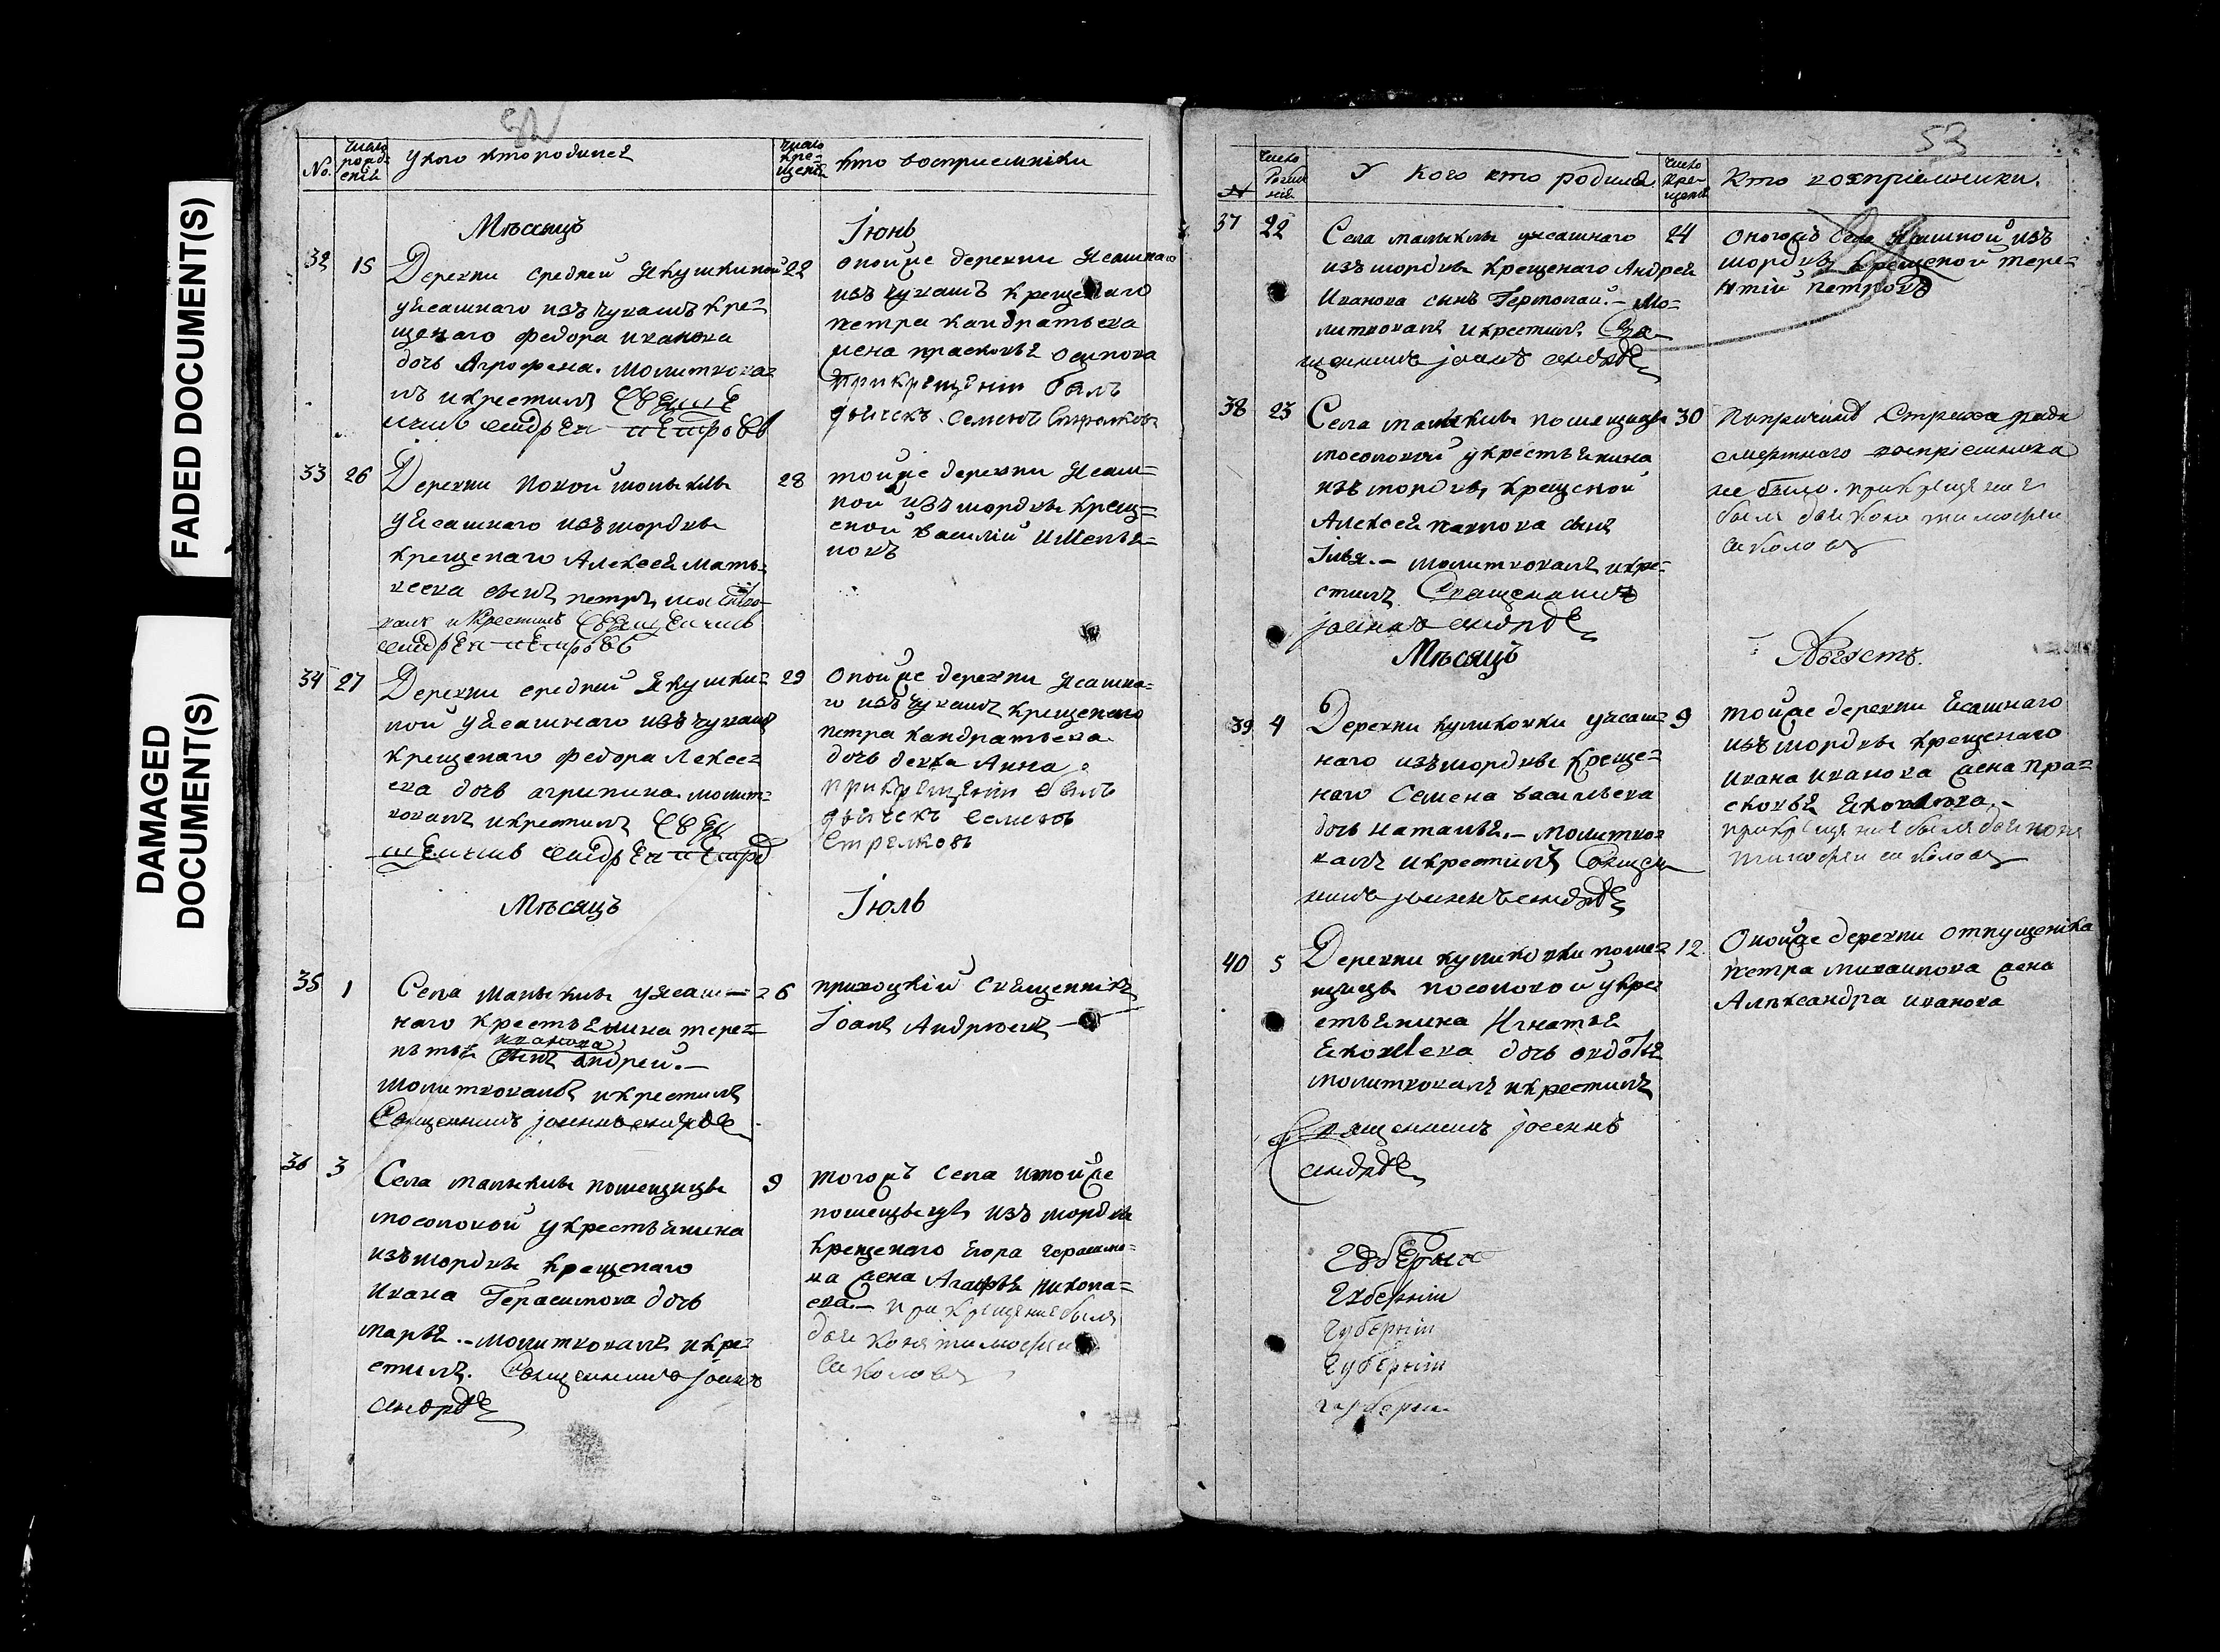 FADED DOCUMENT(S)
DAMAGED
DOCUMENT(S)
52
No.
число
рожд
енія
у кого кто родился
число
кре=
щенія
кто восприемники
Мѣсяцъ
Іюнь
32
15
Деревни средней Якушкиной
уясашнаго изъ чувашъ кре=
щенаго федора иванова
дочь Агрофена. молитвова=
лъ и крестилъ
андрей петровъ
22
оной же деревни ясашнаго
изъ чувашъ крещенаго
петра кандратьева
жена прасковья осипова
при крещении былъ
дьячекъ семенъ Стрелковъ
33
26
Деревни новой малыклы
уясашнаго изъ мордвы
крещенаго Алексея мать=
веева сынъ петръ, молитво=
валъ и крестилъ священникъ
андрей петровъ
28
той же деревни ясаш=
ной изъ мордвы крещ=
еной василий
34
27
Деревни средней Якушки=
ной уясашнаго изъ чувашъ
крещенаго федора Алексе=
ева дочь агрипина. молит=
вовалъ и крестилъ свя
щенникъ андрей петро
29
оной же деревни ясашна=
го изъ чувашъ крещенаго
петра кандратьева
дочь девка Анна
при крещении былъ
дьячекъ семенъ
Стрелковъ
Мѣсяцъ
Іюль
35
1
Села малыклы уясаш=
наго крестьянина терен=
тья иванова сынъ андрей.—
молитвовалъ и крестилъ
Священникъ іоаннъ андрее
6
приходский священникъ
Іоанъ Андреевъ
36
3
Села малыклы помещицы
мосоловой у крестьянина
изъ мордвы крещенаго
ивана Герасимова дочь
марья.— молитвовалъ и кре=
стилъ. Священникъ іоаннъ
андрее
9
того жъ села и той же
помещицы изъ мордвы
крещенаго Егора герасимо=
ва жена Агафья никола=
ева.— при крещение былъ
дьяконъ тимофеи
саколовъ
53
N
число
рожде
нія
У кого кто родился
число
кре=
щенія
Кто восприемники.
37
22
Села малыклы уясашнаго
изъ мордвы крещенаго Андрея
Иванова сынъ — мо=
литвовалъ и крестилъ Свя
щенникъ іоаннъ андрее
24
оногожъ села ясашной изъ
мордвы крещеной тере=
нтий петровъ
38
23
Села малыклы помещицы
мосоловой у крестьянина
изъ мордвы крещеной
Алексея павлова сынъ
Ілья.— молитвовалъ и кре=
стилъ Священникъ
іоаннъ андрее
30
По причине Страха ради
смертного восприемника
не было. при крещение
былъ дьяконъ тимофеи
саколовъ
Мѣсяцъ
Августъ.
39
4
Деревни куликовки уясаш=
наго изъ мордвы креще=
наго Семена васильева
дочь наталья.— молитво=
валъ и крестилъ Священ
никъ іоаннъ андрее
9
той же деревни Ясашнаго
изъ мордвы крещенаго
ивана иванова жена пра=
сковья Яковлева.—
при крещение былъ дьяконъ
тимофеи саколовъ
40
5
Деревни куликовки поме=
щицы мосоловой у кре=
стьянина Игнатья
Яковлева дочь овдотья
молитвовалъ и крестилъ
Священникъ іоаннъ
андрее
12
Оной же деревни отпущеника
петра михаилова жена
Александра иванова
Губернии
Губернии
Губернии
Губернии